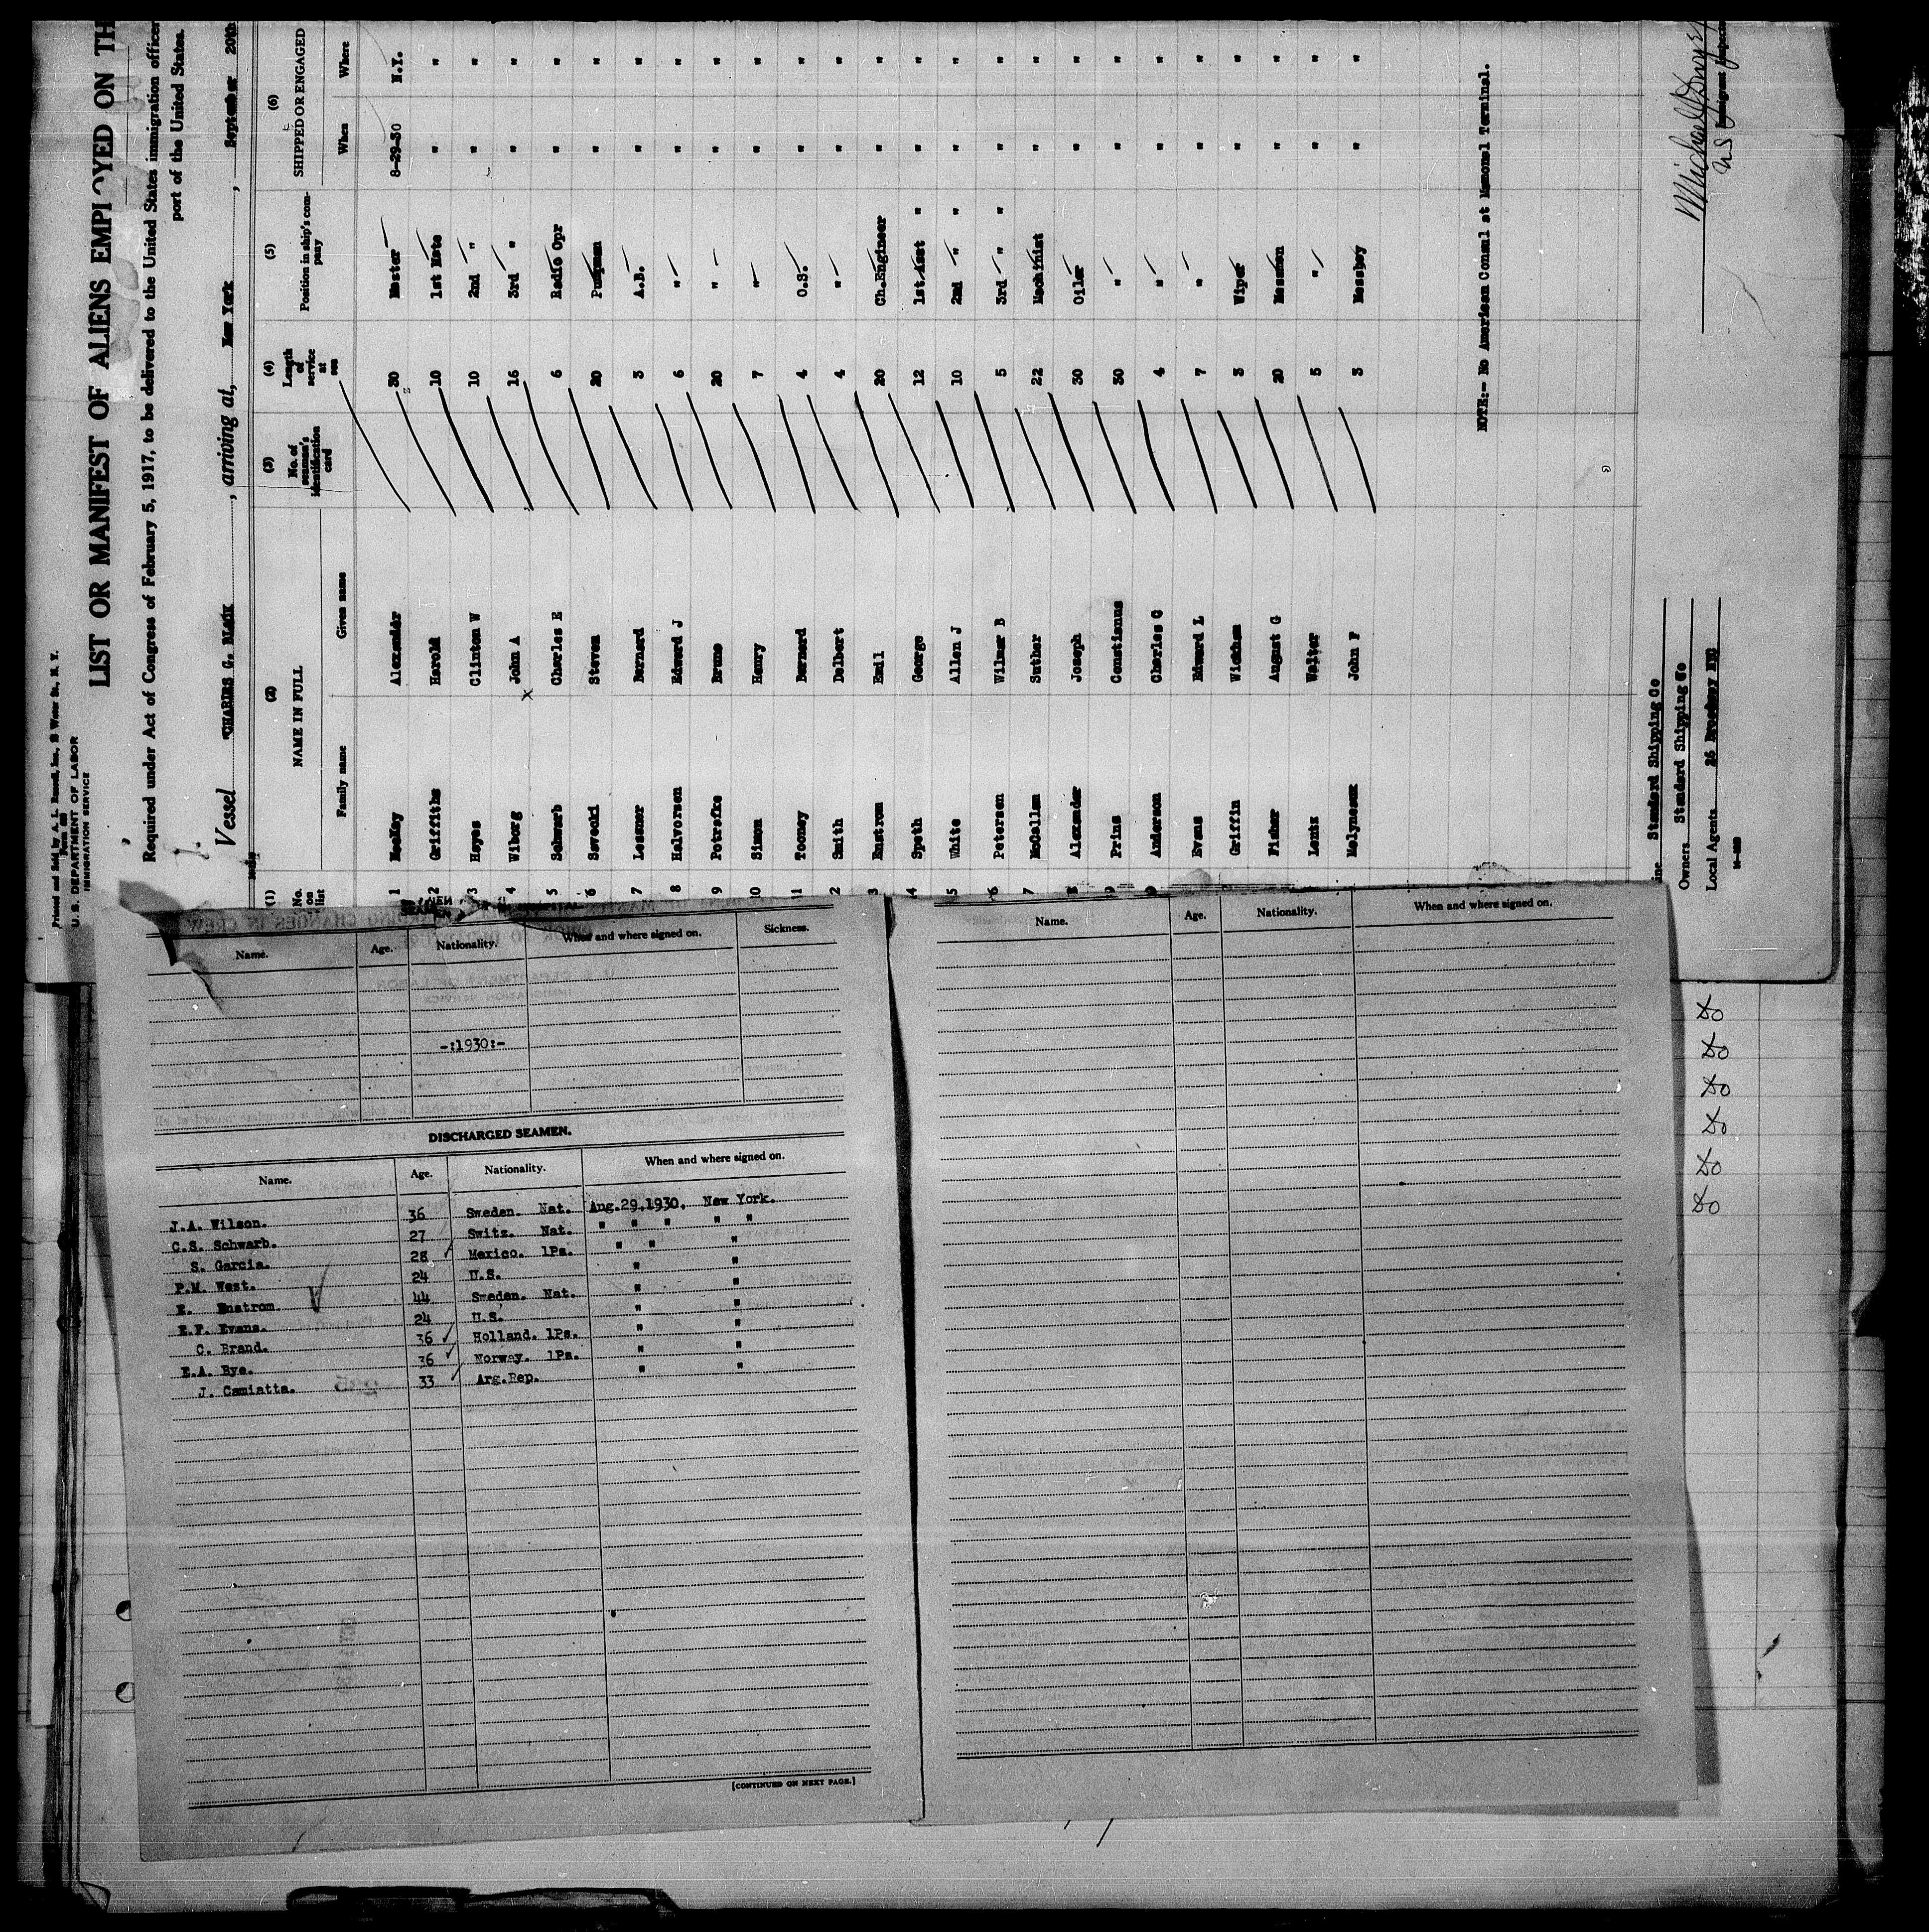 Printed and Sold by A. L. Russell, Inc., Water St., N. Y.
Form 680
U. S. DEPARTMENT OF LABOR
IMMIGRATION SERVICE
LIST OR MANIFEST OF ALIENS EMPLOYED ON TH
Required under Act of Congress of February 5, 1917, to be delivered to the United States immigration officer
port of the United States.
Vessel "CHARLES G. BLACK , arriving at, New York , September 20th
(1) (2) (3) (4) (5) (6)
No. on list NAME IN FULL No. of seaman's identification card Length of service at sea Position in ship's company SHIPPED OR ENGAGED
Family name Given name When Where
1 Alexander 30 Master 8-29-30 N.Y.
2 Griffiths Harold 10 1st Mate " "
3 Hayes Clinton W 10 2nd " " "
4 Wiborg John A 16 3rd " " "
5 Schwarb Charles E 6 Radio Opr " "
6 Savecki Steven 20 Pumpman " "
7 Lesner Bernard 3 A.B. " "
8 Halvorsen Edward J 6 " " "
9 Potrafke Bruno 20 " " "
10 Simon Henry 7 " " "
11 Tooney Bernard 4 O.S. " "
2 Smith Delbert 4 " " "
3 Enstrom Emil 20 Ch.Engineer " "
14 Speth George 12 1st Asst " " "
15 White Allen J 10 2nd " " " "
6 Petersen Wilmer B 5 3rd " " " "
7 McCallam Suther 22 Machinist " "
8 Alexander Joseph 30 Oiler " "
9 Prins Constianus 30 " " "
Anderson Charles C 4 " " "
Evans Edward L 7 " " "
Griffin Wickham 3 Wiper " "
Fisher August G 20 Messman " "
Lentz Walter 5 " " "
Molyneaux John F 3 Messboy " "
NOTE:- No American Consul at Mamonal Terminal.
ine Standard Shipping Co
Owners Standard Shipping Co
Local Agents 26 Broadway NYC
Immigrant Inspector
Name. Age. Nationality. When and where signed on. Sickness.
-:1930:-
DISCHARGED SEAMEN.
Name. Age. Nationality. When and where signed on.
J.A. Wilson. 36 Sweden. Nat. Aug.29.1930. New York.
C.S. Schwarb. 27 Switz. Nat. " " " " "
S. Garcia. 28 Mexico. 1Ps. " " "
P.M. West. 24 U.S. " "
E. Enstrom. 44 Sweden. Nat. " "
E.F. Evans. 24 U.S. " "
C. Brand. 36 Holland. 1Ps. " "
E.A. Bye. 36 Norway. 1Ps. " "
J. Camiatta. 33 Arg.Rep. " "
[CONTINUED ON NEXT PAGE.]
Name. Age. Nationality. When and where signed on.
do
do
do
do
do
do